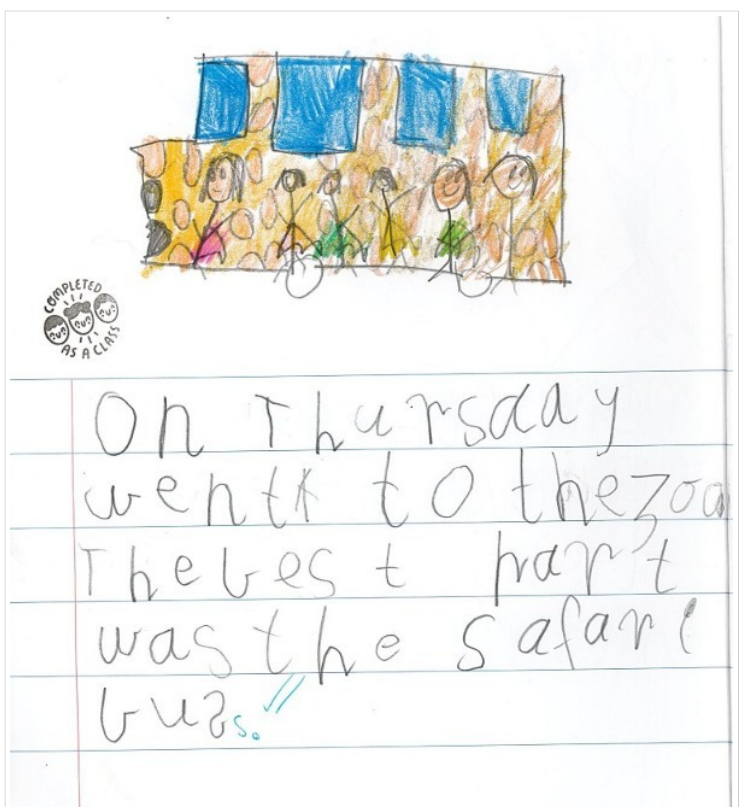 COMPLETED
AS A CLASS
On Thursday
wentk to the zoo
The best part
was the safari
bus s.